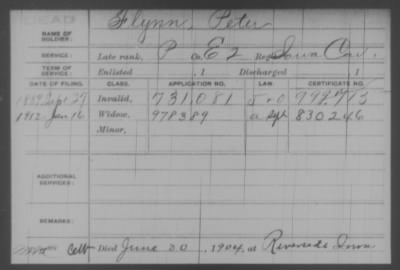 DEAD
NAME OF SOLDIER: Flynn, Peter
SERVICE: Late rank, P Co. E 2 Reg. Iowa Cav.
TERM OF SERVICE: Enlisted , 1 Discharged , 1
DATE OF FILING. CLASS. APPLICATION NO. LAW. CERTIFICATE NO.
1889 Sept 27 Invalid, 731,081
1912 Jan 16 Widow, 978389 830246
Minor,
ADDITIONAL SERVICES:
REMARKS:
Died June 20, 1904, at Riverside Iowa